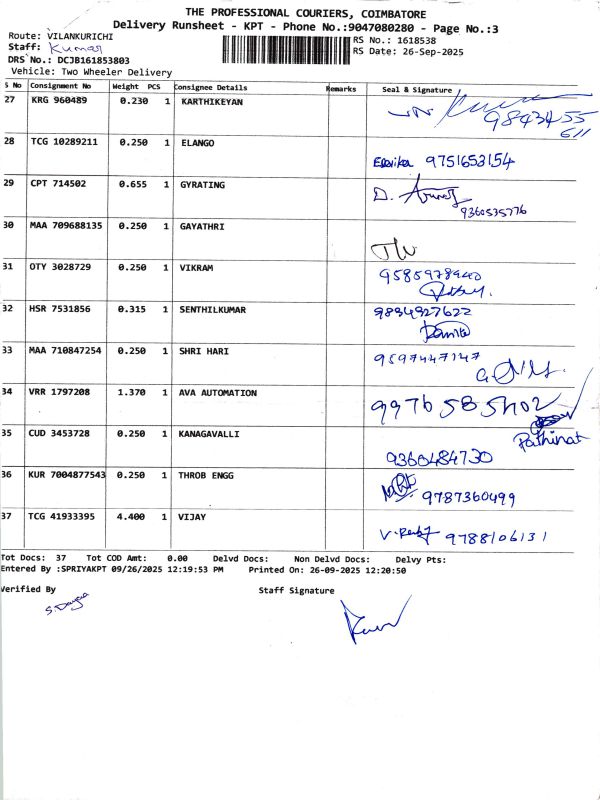 THE PROFESSIONAL COURIERS, COIMBATORE
Delivery Runsheet - KPT - Phone No.:9047080280 - Page No.:3
Route: VILANKURICHI
RS No.: 1618538
Staff: Kumar
RS Date: 26-Sep-2025
DRS No.: DCJB161853803
Vehicle: Two Wheeler Delivery
S No Consignment No Weight PCS Consignee Details Remarks Seal & Signature
27 KRG 960489 0.230 1 KARTHIKEYAN
9843455
611
28 TCG 10289211 0.250 1 ELANGO
9751653154
29 CPT 714502 0.655 1 GYRATING
D.
9360535776
30 MAA 709688135 0.250 1 GAYATHRI
31 OTY 3028729 0.250 1 VIKRAM
9585978940
32 HSR 7531856 0.315 1 SENTHILKUMAR
9894927622
33 MAA 710847254 0.250 1 SHRI HARI
9597447147
34 VRR 1797208 1.370 1 AVA AUTOMATION
35 CUD 3453728 0.250 1 KANAGAVALLI
9360484730
36 KUR 7004877543 0.250 1 THROB ENGG
9787360499
37 TCG 41933395 4.400 1 VIJAY
9788106131
Tot Docs: 37 Tot COD Amt: 0.00 Delvd Docs: Non Delvd Docs: Delvy Pts:
Entered By :SPRIYAKPT 09/26/2025 12:19:53 PM Printed On: 26-09-2025 12:20:50
Verified By Staff Signature